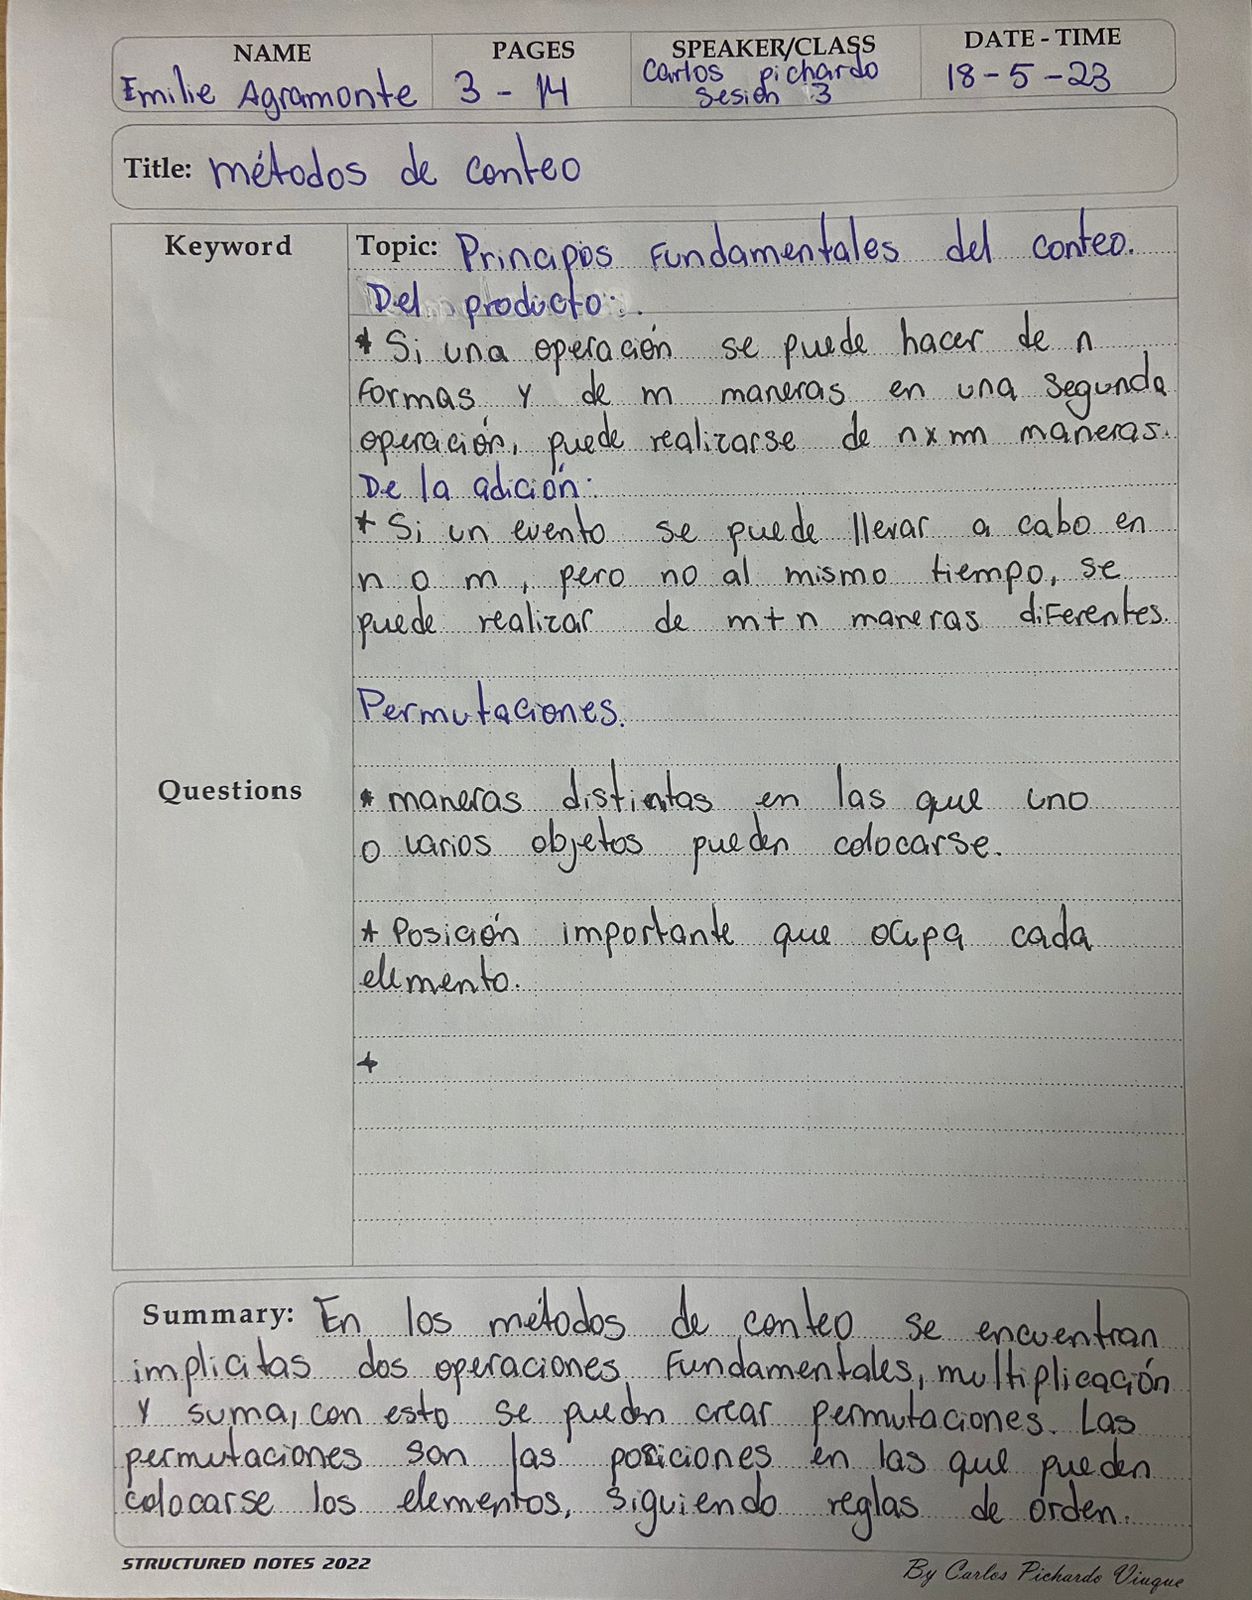 NAME PAGES SPEAKER/CLASS DATE - TIME
Emilie Agramonte 3 - 14 Carlos pichardo sesión 3 18-5-23
Title: métodos de conteo
Keyword
Topic: Principios Fundamentales del conteo.
Del producto:.
* Si una operación se puede hacer de n
formas y de m maneras en una segunda
operación, puede realizarse de n x m maneras.
De la adición:
* Si un evento se puede llevar a cabo en
n o m, pero no al mismo tiempo, se
puede realizar de m+n maneras diferentes.
Permutaciones.
Questions
* maneras distintas en las que uno
o varios objetos pueden colocarse.
* Posición importante que ocupa cada
elemento.
*
Summary: En los métodos de conteo se encuentran
implicitas dos operaciones fundamentales, multiplicación
y suma, con esto se pueden crear permutaciones. Las
permutaciones son las posiciones en las que pueden
colocarse los elementos, siguiendo reglas de orden.
STRUCTURED NOTES 2022
By Carlos Pichardo Viuque